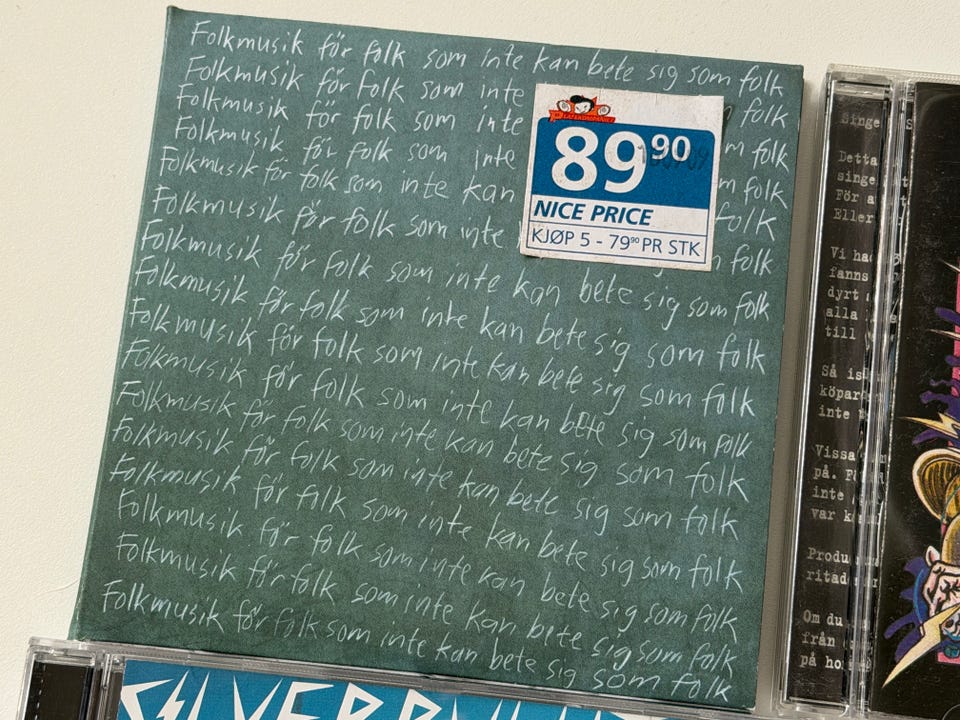 Folkmusik för folk som inte kan bete sig som folk
Folkmusik för folk som inte folk
Folkmusik för folk som inte folk
Folkmusik för folk som inte folk
Folkmusik för folk som inte kan folk
Folkmusik för folk som inte folk
Folkmusik för folk som inte kan bete sig som folk
Folkmusik för folk som inte kan bete sig som folk
Folkmusik för folk som inte kan bete sig som folk
Folkmusik för folk som inte kan bete sig som folk
Folkmusik för folk som inte kan bete sig som folk
Folkmusik för folk som inte kan bete sig som folk
Folkmusik för folk som inte kan bete sig som folk
Folkmusik för folk som inte kan bete sig som folk
Folkmusik för folk som inte kan bete sig som folk
Folkmusik för folk som inte kan bete sig som folk
PLATEKOMPANIET
89 90
NICE PRICE
KJØP 5 - 79 90 PR STK
Singe
Detta
singe
För a
Eller
Vi ha
fanns
dyrt
alla
till
Så is
köpar
inte
Vissa
på. F
inte
var k
Produ
ritad
Om du
från
på ho